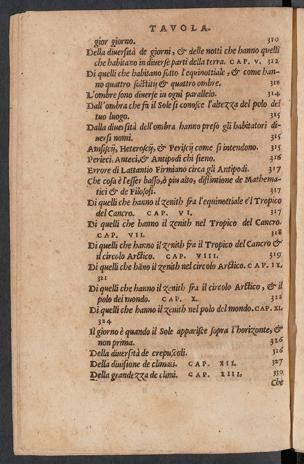 TAVOLA.
gior giorno. 310
Della diuersità de giorni, & delle notti che hanno quelli
che habitano in diuerse parti della terra. CAP. V. 312
Di quelli che habitano sotto l'equinottiale, & come han-
no quattro solstitij & quattro ombre.
L'ombre sono diuerse in ogni parallelo. 314
Dall'ombra che fa il Sole si conosce l'altezza del polo del
tuo luogo. 315
Dalla diuersità dell'ombra hanno preso gli habitatori di-
uersi nomi. 315
Amfiscij, Heteroscij, & Periscij come si intendono. 315
Perieci. Anteci, & Antipodi chi sieno. 316
Errore di Lattantio Firmiano circa gli Antipodi. 317
Che cosa è l'esser basso, ò piu alto, distintione de Mathema-
tici & de Filosofi. 317
Di quelli che hanno il zenith fra l'equinottiale e'l Tropico
del Cancro. CAP. VI. 317
Di quelli che hanno il zenith nel Tropico del Cancro.
CAP. VII. 318
Di quelli che hanno il zenith fra il Tropico del Cancro &
il circolo Arctico. CAP. VIII. 319
Di quelli che hãno il zenith nel circolo Arctico. CAP. IX.
321
Di quelli che hanno il zenith fra il circolo Arctico, & il
polo del mondo. CAP. X. 322
Di quelli che hanno il zenith nel polo del mondo. CAP. XI.
324
Il giorno è quando il Sole apparisce sopra l'horizonte, &
non prima. 326
Della diuersità de crepuscoli. 326
Della diuisione de climati. CAP. XII. 327
Della grandezza de climi. CAP. XIII. 330
Che